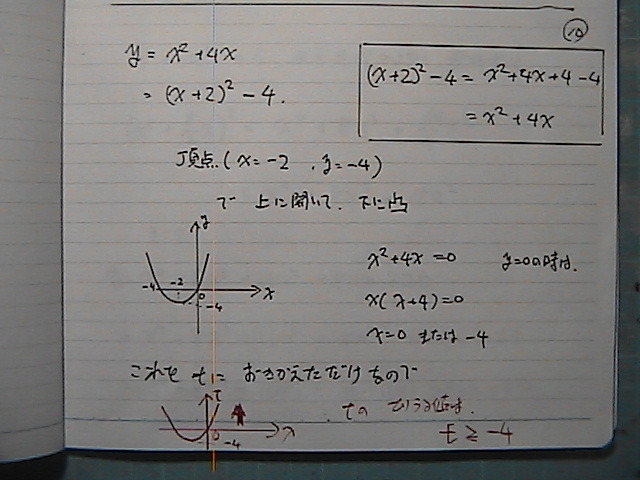 ⑩
y = x² + 4x
= (x+2)² - 4.
(x+2)² - 4 = x² + 4x + 4 - 4
= x² + 4x
頂点 (x = -2 , y = -4)
で 上に開いて. 下に凸
y
-4 -2 0 x
-4
x² + 4x = 0 y=0の時は.
x(x+4) = 0
x = 0 または -4
これを tに おきかえただけなので
t
0 x
-4
tの とりうる値は.
t ≥ -4